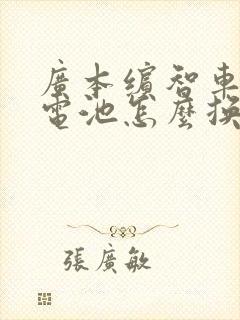 廣本繽智車
電池怎麼換
張廣敏